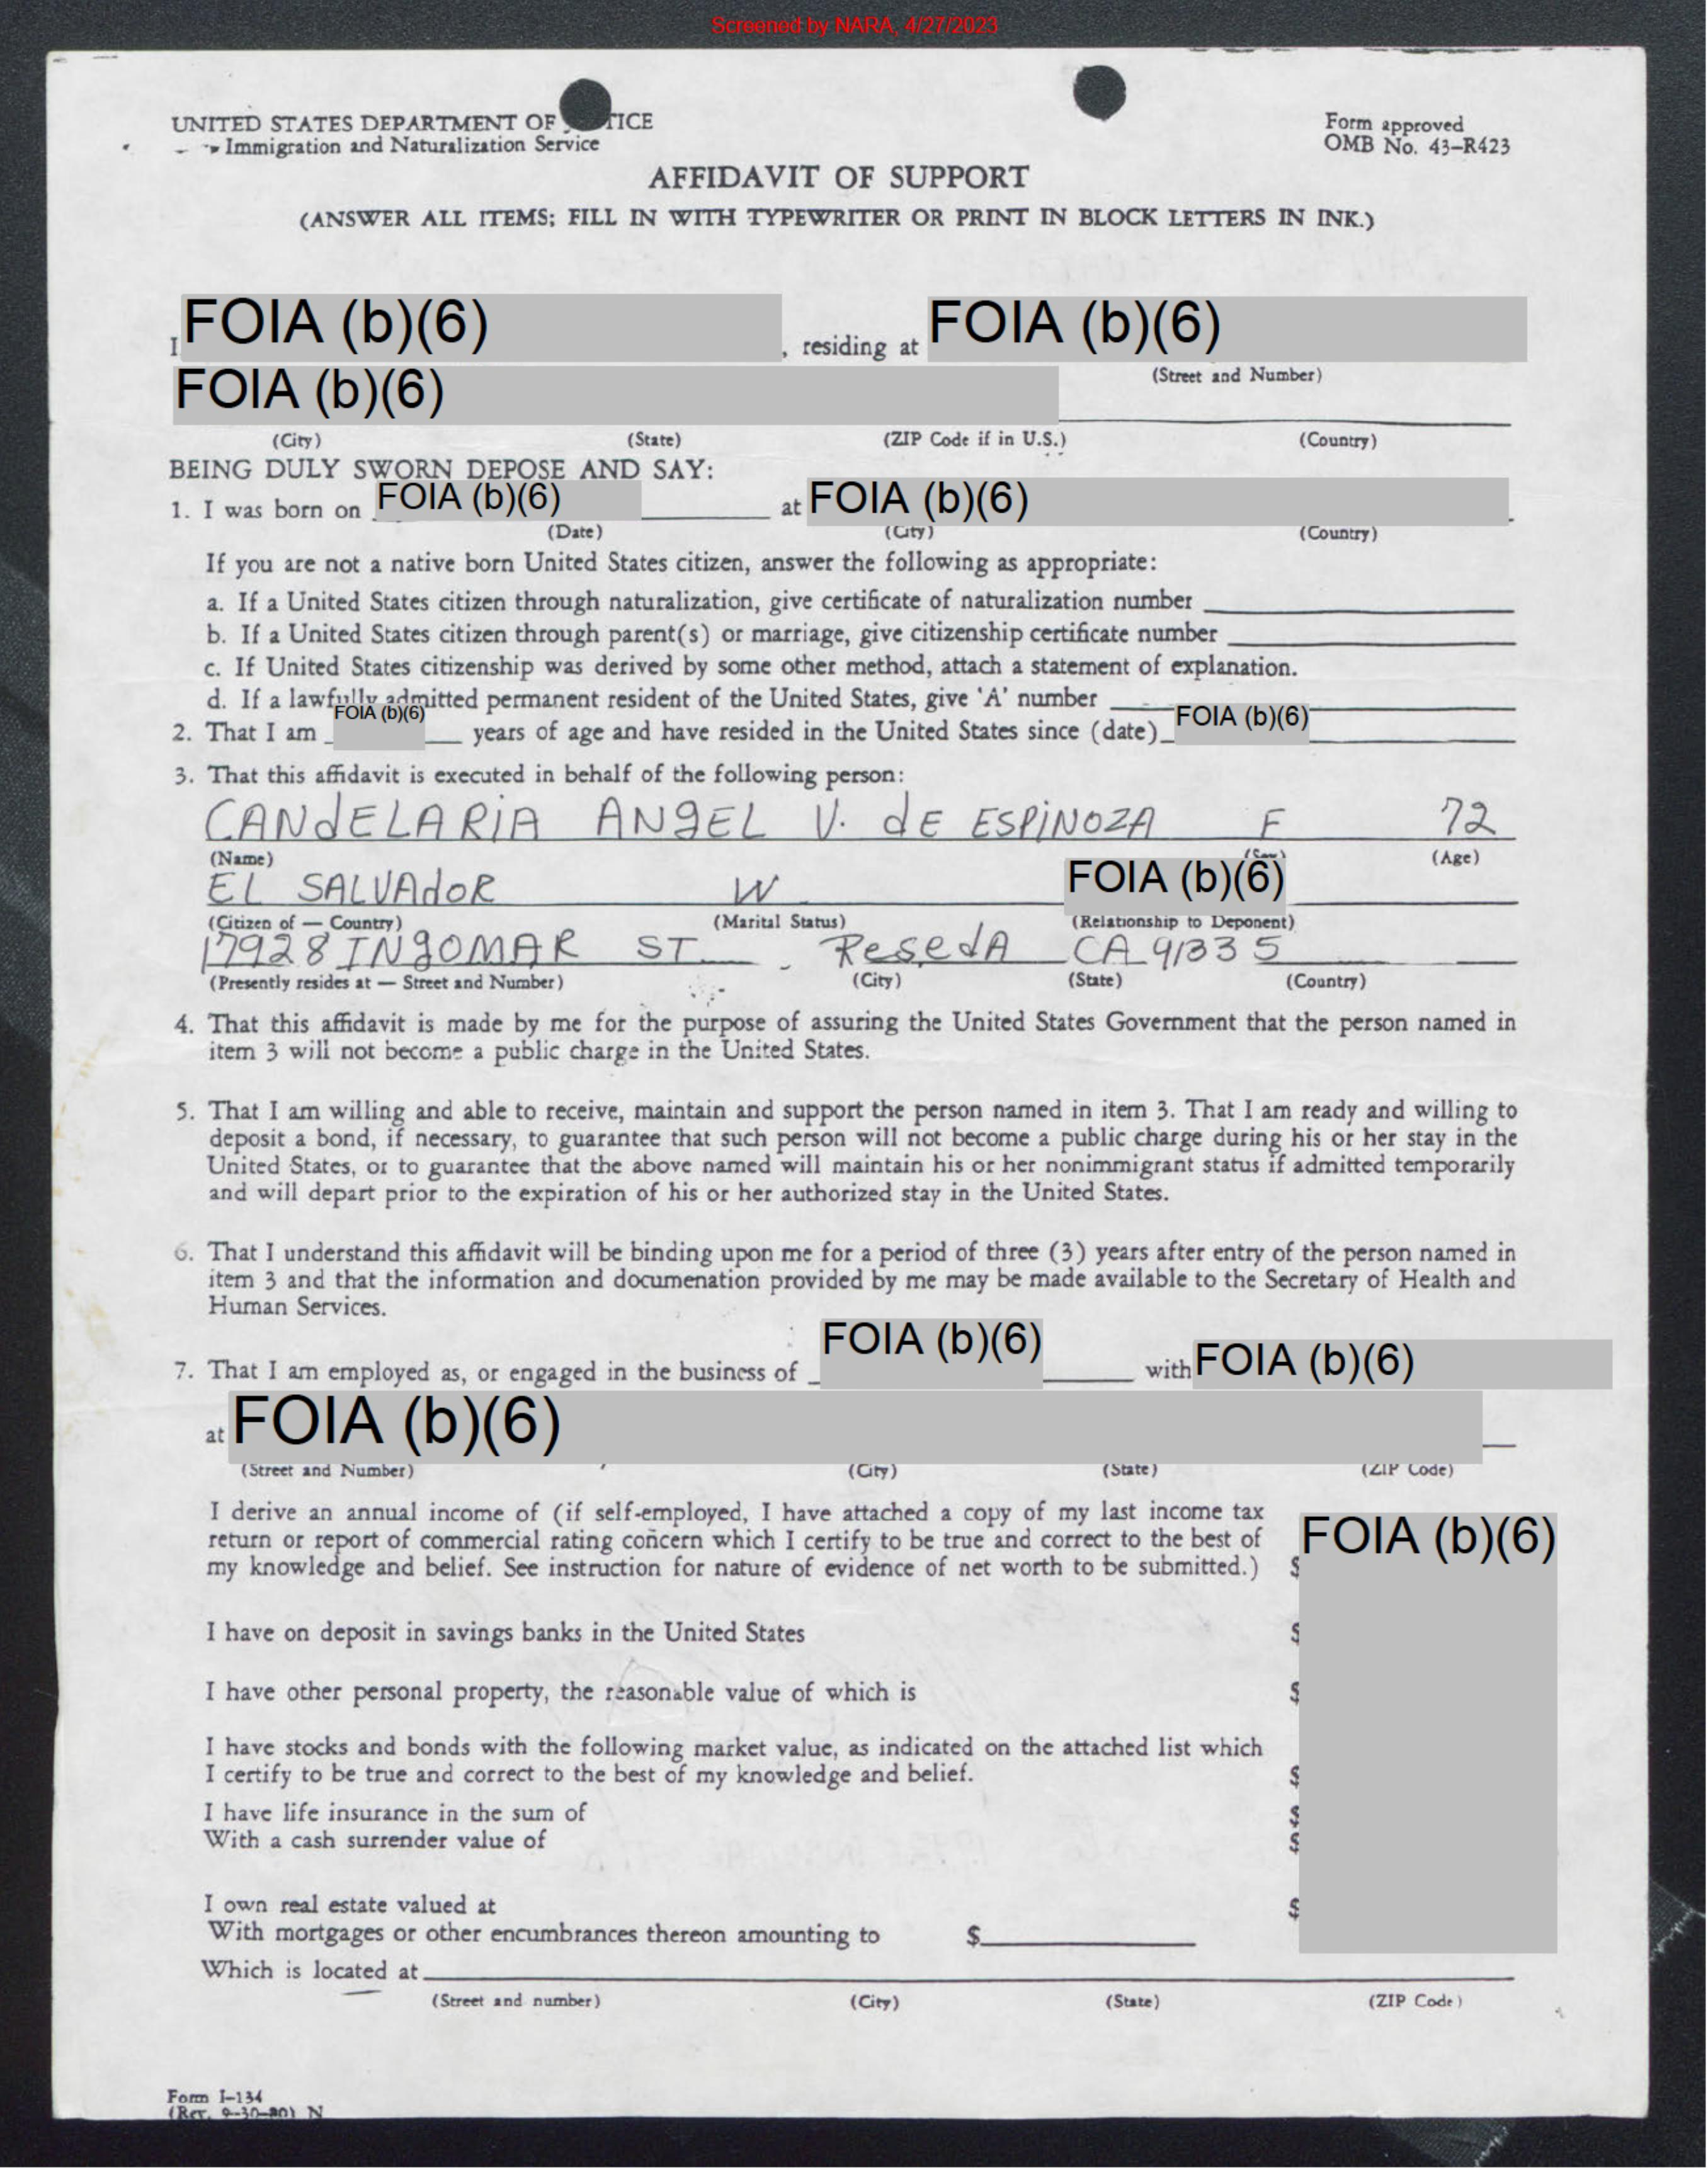 Screened by NARA, 4/27/2023
UNITED STATES DEPARTMENT OF TICE
Immigration and Naturalization Service
Form approved
OMB No. 43-R423
AFFIDAVIT OF SUPPORT
(ANSWER ALL ITEMS; FILL IN WITH TYPEWRITER OR PRINT IN BLOCK LETTERS IN INK.)
I FOIA (b)(6), residing at FOIA (b)(6)
(Street and Number)
FOIA (b)(6)
(City) (State) (ZIP Code if in U.S.) (Country)
BEING DULY SWORN DEPOSE AND SAY:
1. I was born on FOIA (b)(6) at FOIA (b)(6)
(Date) (City) (Country)
If you are not a native born United States citizen, answer the following as appropriate:
a. If a United States citizen through naturalization, give certificate of naturalization number
b. If a United States citizen through parent(s) or marriage, give citizenship certificate number
c. If United States citizenship was derived by some other method, attach a statement of explanation.
d. If a lawfully admitted permanent resident of the United States, give 'A' number
2. That I am FOIA (b)(6) years of age and have resided in the United States since (date) FOIA (b)(6)
3. That this affidavit is executed in behalf of the following person:
CANdELARiA ANgEL V. dE ESPiNOZA F 72
(Name) (Sex) (Age)
EL SALVAdOR W FOIA (b)(6)
(Citizen of — Country) (Marital Status) (Relationship to Deponent)
17928 INgOMAR ST. ReSedA CA 91335
(Presently resides at — Street and Number) (City) (State) (Country)
4. That this affidavit is made by me for the purpose of assuring the United States Government that the person named in
item 3 will not become a public charge in the United States.
5. That I am willing and able to receive, maintain and support the person named in item 3. That I am ready and willing to
deposit a bond, if necessary, to guarantee that such person will not become a public charge during his or her stay in the
United States, or to guarantee that the above named will maintain his or her nonimmigrant status if admitted temporarily
and will depart prior to the expiration of his or her authorized stay in the United States.
6. That I understand this affidavit will be binding upon me for a period of three (3) years after entry of the person named in
item 3 and that the information and documenation provided by me may be made available to the Secretary of Health and
Human Services.
7. That I am employed as, or engaged in the business of FOIA (b)(6) with FOIA (b)(6)
at FOIA (b)(6)
(Street and Number) (City) (State) (ZIP Code)
I derive an annual income of (if self-employed, I have attached a copy of my last income tax
return or report of commercial rating concern which I certify to be true and correct to the best of
my knowledge and belief. See instruction for nature of evidence of net worth to be submitted.) $ FOIA (b)(6)
I have on deposit in savings banks in the United States $
I have other personal property, the reasonable value of which is $
I have stocks and bonds with the following market value, as indicated on the attached list which
I certify to be true and correct to the best of my knowledge and belief. $
I have life insurance in the sum of $
With a cash surrender value of $
I own real estate valued at $
With mortgages or other encumbrances thereon amounting to $
Which is located at
(Street and number) (City) (State) (ZIP Code)
Form I-134
(Rev. 9-30-80) N